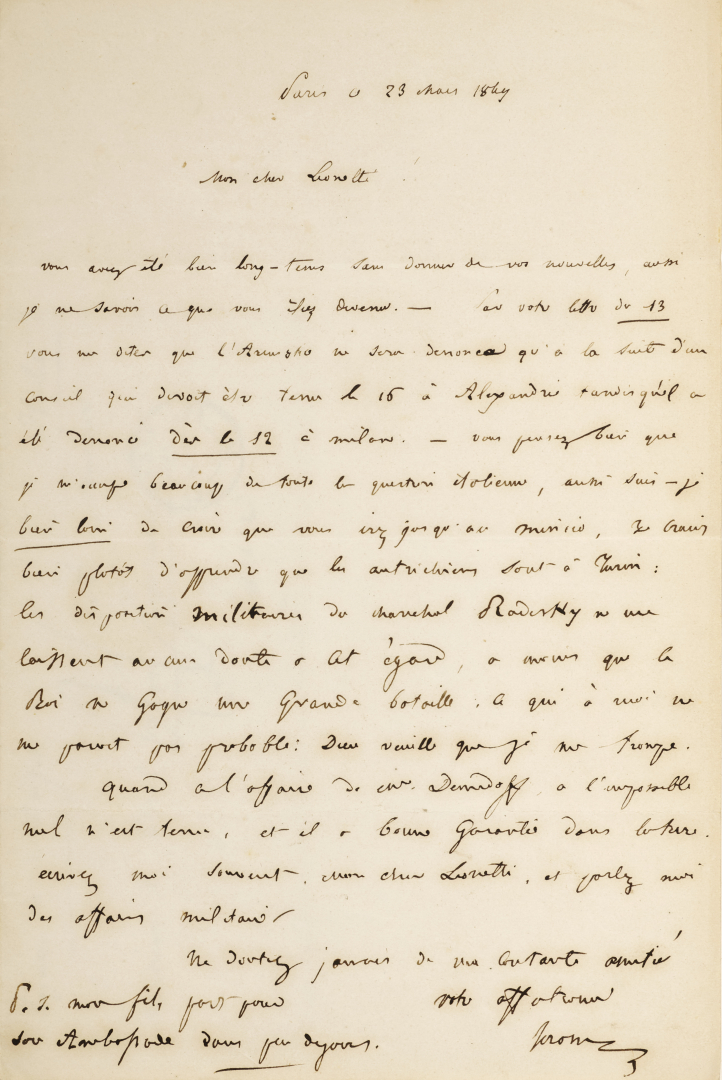 Paris a 23 Mars 1849
Mon cher Lionetti
vous aviez été bien long-tems sans donner de vos nouvelles, aussi
je ne savois ce que vous étiez devenu. — Par votre lettre du 13
vous me dites que l'Armistice ne sera denoncé qu'a la suite d'un
conseil qui devoit être tenu le 16 à Alexandrie tandisqu'il a
été denoncé dès le 12 à milan. — vous pensez bien que
je m'occupe beaucoup de toute la question italienne, aussi suis-je
bien loin de croire que vous irez jusqu'au mincio, je crains
bien plutôt d'apprendre que les autrichiens sont à Turin :
les dispositions militaires du marechal Radetzky ne me
laissent aucun doute a cet égard, a moins que le
Roi ne gagne une Grande bataille. ce qui à moi ne
me paroit pas probable : Dieu veuille que je me trompe.
quand a l'affaire de Mr. Demidoff, a l'impossible
nul n'est tenu, et il a bonne Garantie dans
écrivez moi souvent, mon cher Lionetti, et parlez moi
des affaires militaires
Ne doutez jamais de ma constante amitié
P.S. mon fils part pour
votre affectionné
son Ambassade dans peu de jours.
Jerome